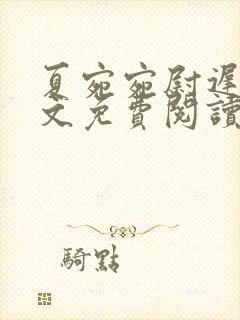 夏宛宛尉遲
文免費閱讀
騎點